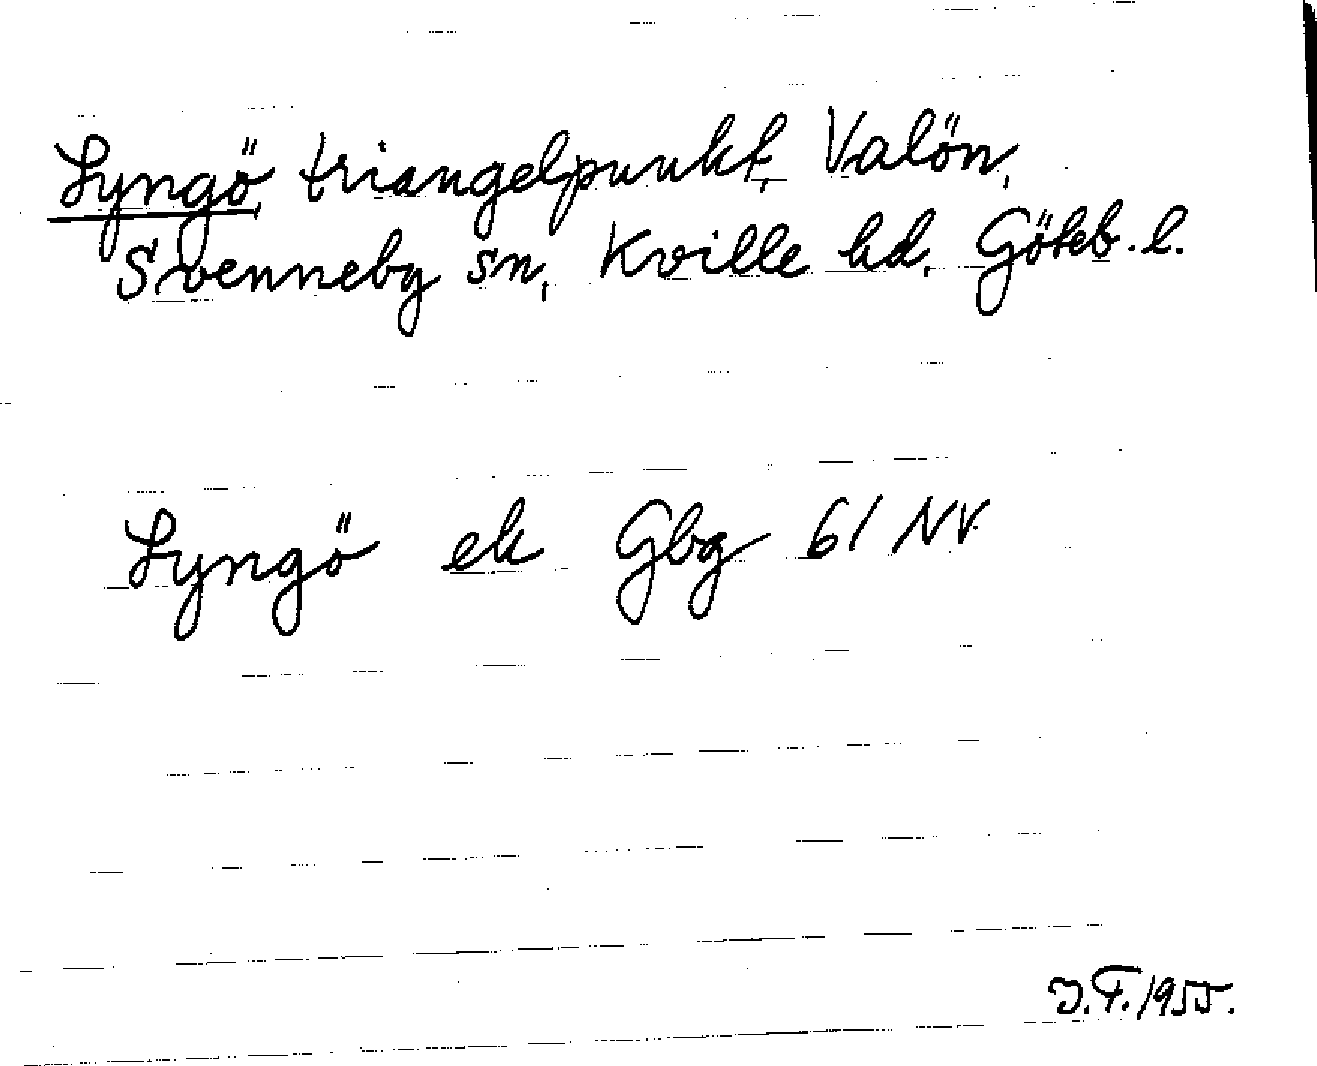 Lyngö, triangelpunkt, Valön,
Svenneby sn, Kville hd, Göteb. l.
Lyngö ek Gbg 61 NV.
J.F. 1955.